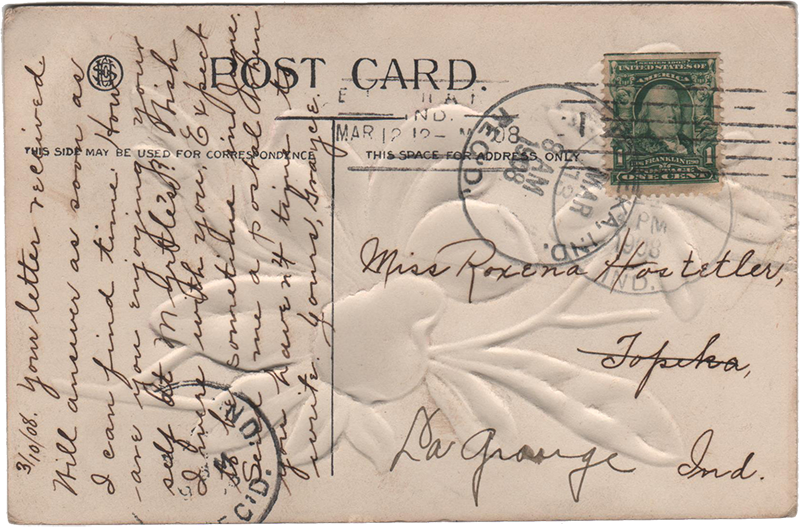 POST CARD.
THIS SIDE MAY BE USED FOR CORRESPONDENCE
THIS SPACE FOR ADDRESS ONLY
3/10/08. Your letter received
Will answer as soon as
I can find time. How
are you enjoying your
self at Myrtle's? Wish
I were with you. Expect
to be sometime in June.
Send me a postal when
you haven't time to
write. Yours, Grayce.
IND.
MAR 12 12-M 08
REC'D.
8 AM
1908
TOPEKA, IND.
MAR
PM
1908
IND.
SERIES 1902
UNITED STATES OF
AMERICA
FRANKLIN
1 1
ONE CENT
Miss Roxena Hostetler,
Topeka,
La Grange Ind.
IND.
REC'D.